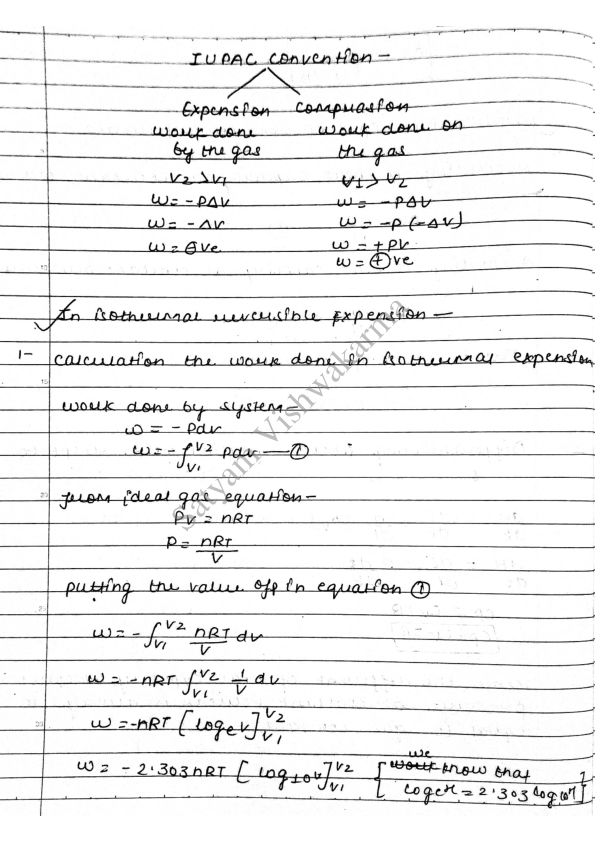 IUPAC Convention -
Expension Compression
work done work done on
by the gas the gas
V2 > V1 V1 > V2
W = -PΔV W = -PΔV
W = -ΔV W = -P(-ΔV)
W = ⊖ve W = +PV
W = ⊕ve
In isothermal reversible Expension -
1- calculation the work done in isothermal expension
work done by system -
W = -Pdv
W = -∫V1 V2 Pdv — ①
from ideal gas equation -
PV = nRT
P = nRT/V
putting the value of P in equation ①
W = -∫V1 V2 nRT/V dv
W = -nRT ∫V1 V2 1/V dv
W = -nRT [loge V]V1 V2
W = -2.303nRT [log10 V]V1 V2 { we know that
loge x = 2.303 log10 x }
Satyam Vishwakarma